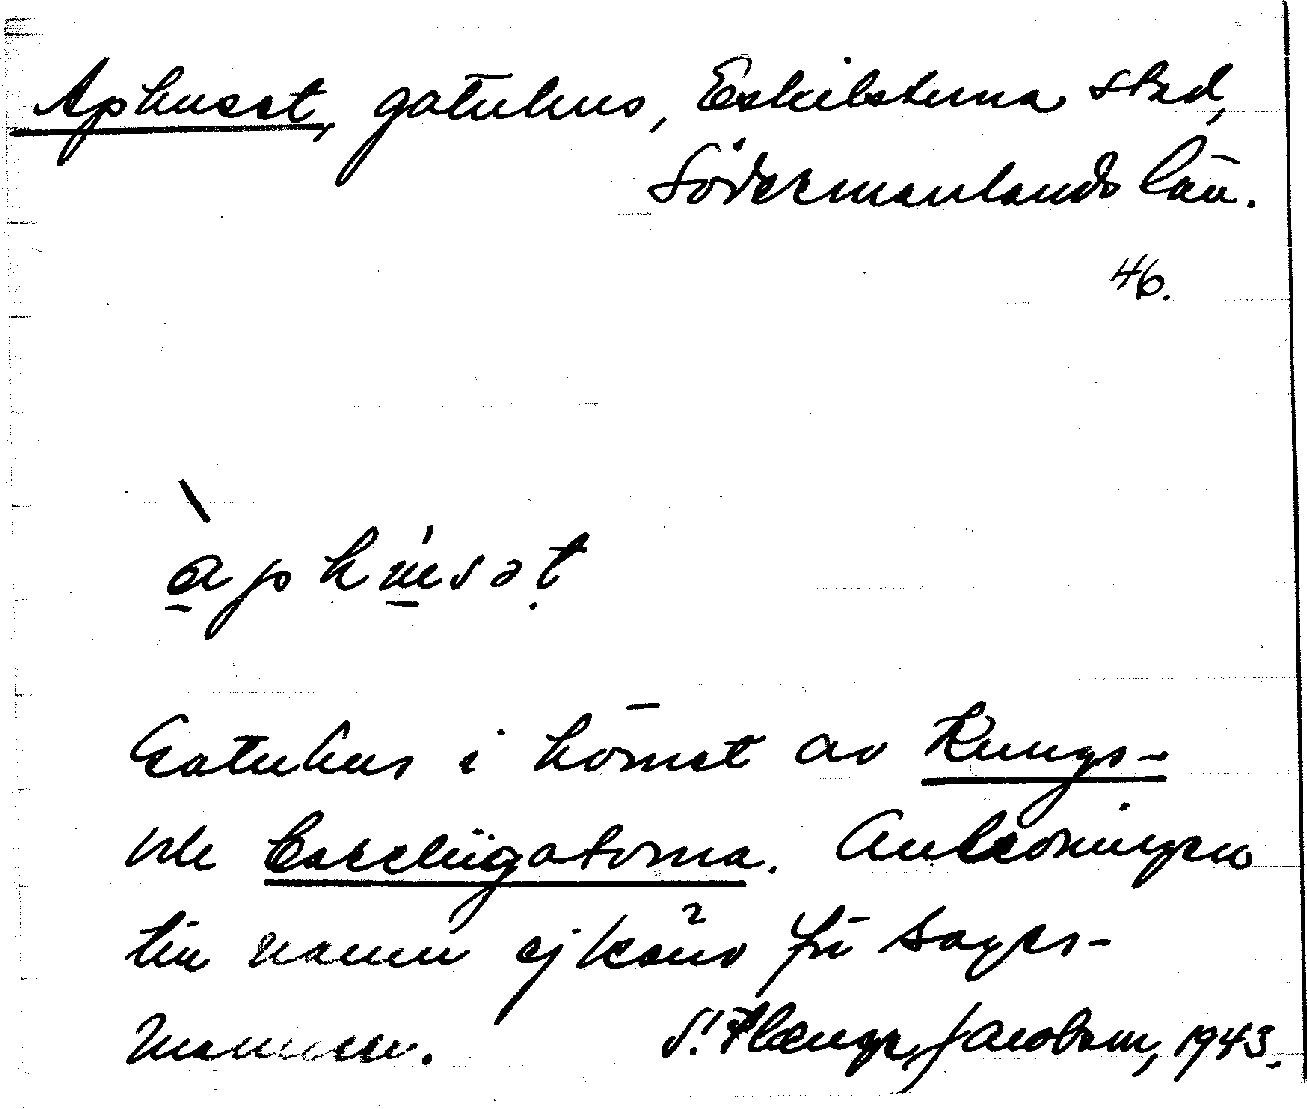 Aphuset, gatuhus, Eskilstuna stad,
Södermanlands län.
46.
àphu̱'sət
Gatuhus i hörnet av Kungs-
och Careliigatorna. Anledningen
till namn ej känd för sages-
mannen. S. Hænge Jacobsen, 1943.